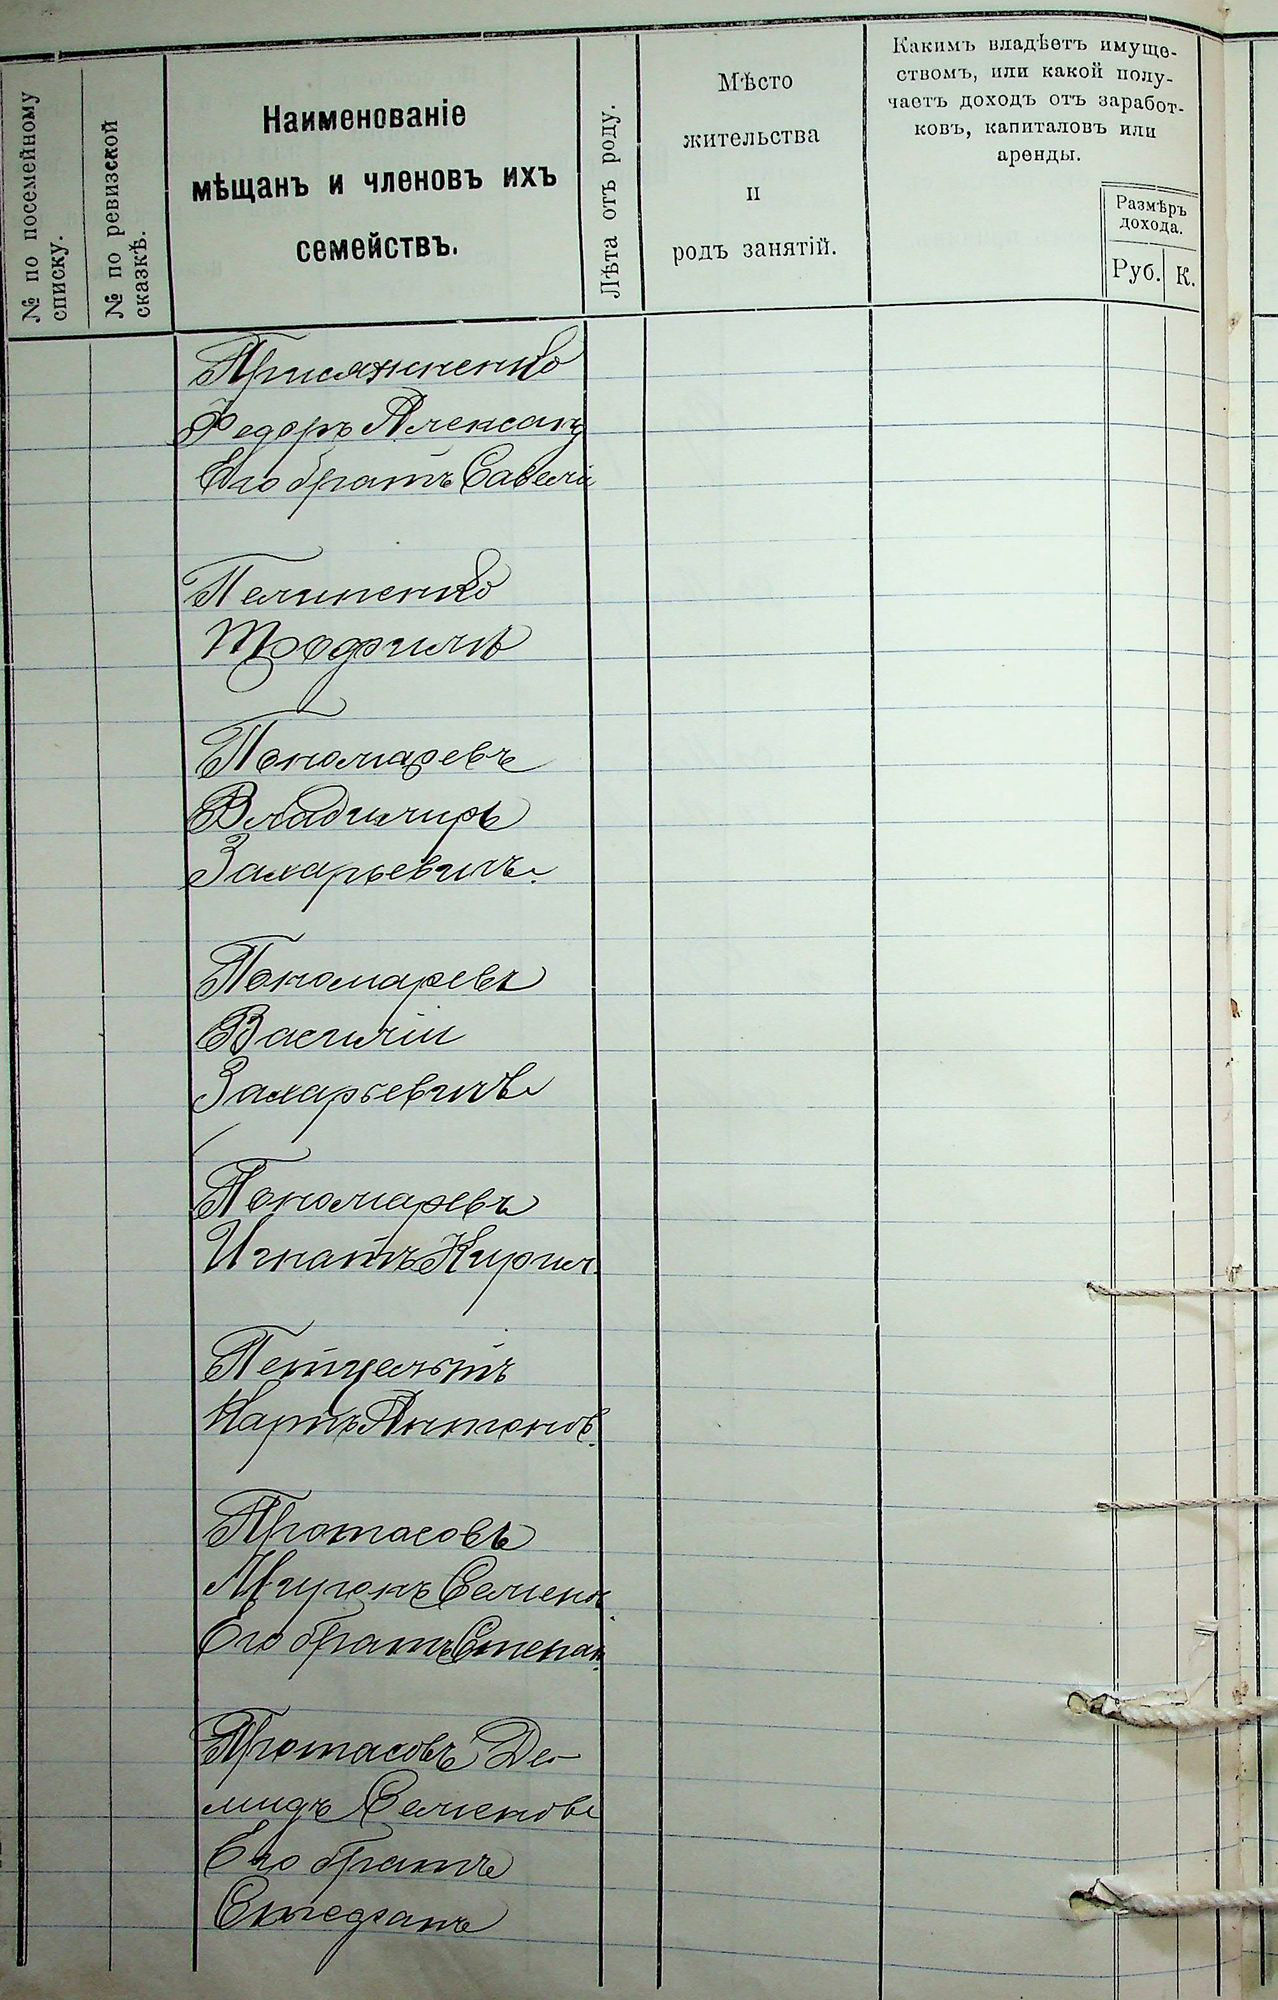 № по посемейному
списку.
№ по ревизской
сказкѣ.
Наименованіе
мѣщанъ и членовъ ихъ
семействъ.
Лѣта отъ роду.
Мѣсто
жительства
и
родъ занятій.
Какимъ владѣетъ имуще-
ствомъ, или какой полу-
чаетъ доходъ отъ заработ-
ковъ, капиталовъ или
аренды.
Размѣръ
дохода.
Руб.
К.
Присяжненко
Федоръ Александ
Его братъ Савелій
Пелипенко
Трофимъ
Пономаревъ
Владимиръ
Захарьевичъ.
Пономаревъ
Василій
Захарьевичъ
Пономаревъ
Игнатъ Кирил.
Петцельтъ
Карлъ Антонов.
Протасовъ
Миронъ Семенов.
Его братъ Степан.
Протасовъ Де-
мидъ Семеновъ
Его братъ
Стефанъ